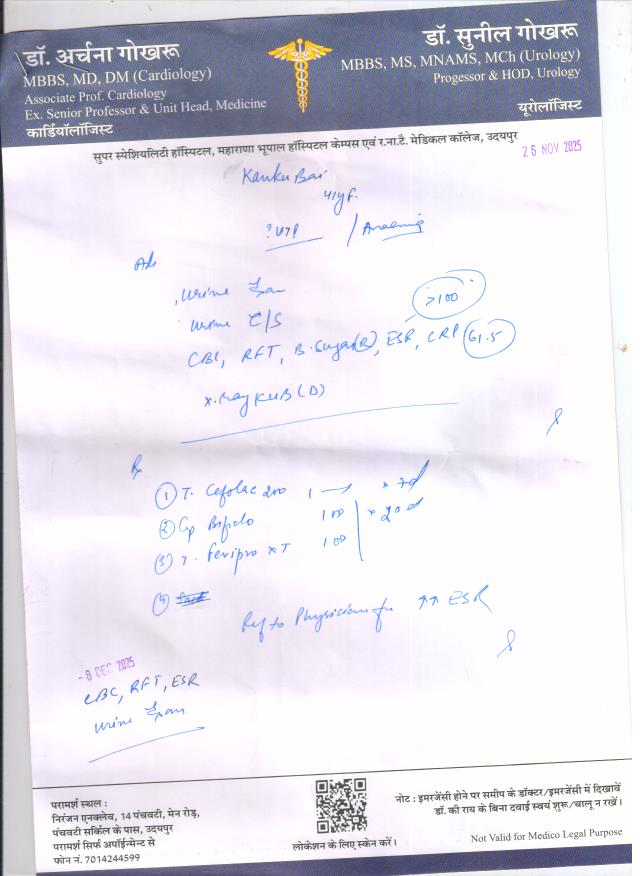 डॉ. अर्चना गोखरू
MBBS, MD, DM (Cardiology)
Associate Prof. Cardiology
Ex. Senior Professor & Unit Head, Medicine
कार्डियॉलॉजिस्ट
डॉ. सुनील गोखरू
MBBS, MS, MNAMS, MCh (Urology)
Progessor & HOD, Urology
यूरोलॉजिस्ट
सुपर स्पेशियलिटी हॉस्पिटल, महाराणा भूपाल हॉस्पिटल केम्पस एवं र.ना.टै. मेडिकल कॉलेज, उदयपुर
25 NOV 2025
Kanku Bai
41yf.
? UTI / Anaemia
Adv
Urine Exam
Urine C/S
>100
CBC, RFT, B. Sugar(R), ESR, CRP 61.5
X.Ray KUB (D)
Rx
① T. Cefolac 200 1 — × 7d
② Cp Bifilo 1 OD × 20d
③ T. Feripro XT 1 OD
④
Ref to Physician for ↑↑ ESR
-8 DEC 2025
CBC, RFT, ESR
Urine Exam
परामर्श स्थल :
निरंजन एनक्लेव, 14 पंचवटी, मेन रोड़,
पंचवटी सर्किल के पास, उदयपुर
परामर्श सिर्फ अपॉईन्मेन्ट से
फोन नं. 7014244599
लोकेशन के लिए स्केन करें।
नोट : इमरजेंसी होने पर समीप के डॉक्टर/इमरजेंसी में दिखावें
डॉ. की राय के बिना दवाई स्वयं शुरू/चालू न रखें।
Not Valid for Medico Legal Purpose